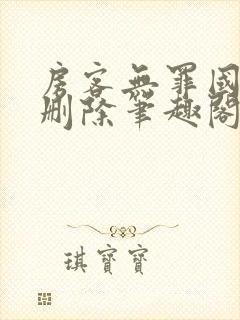 房客無罪國
刪除筆趣閣
琪寶寶